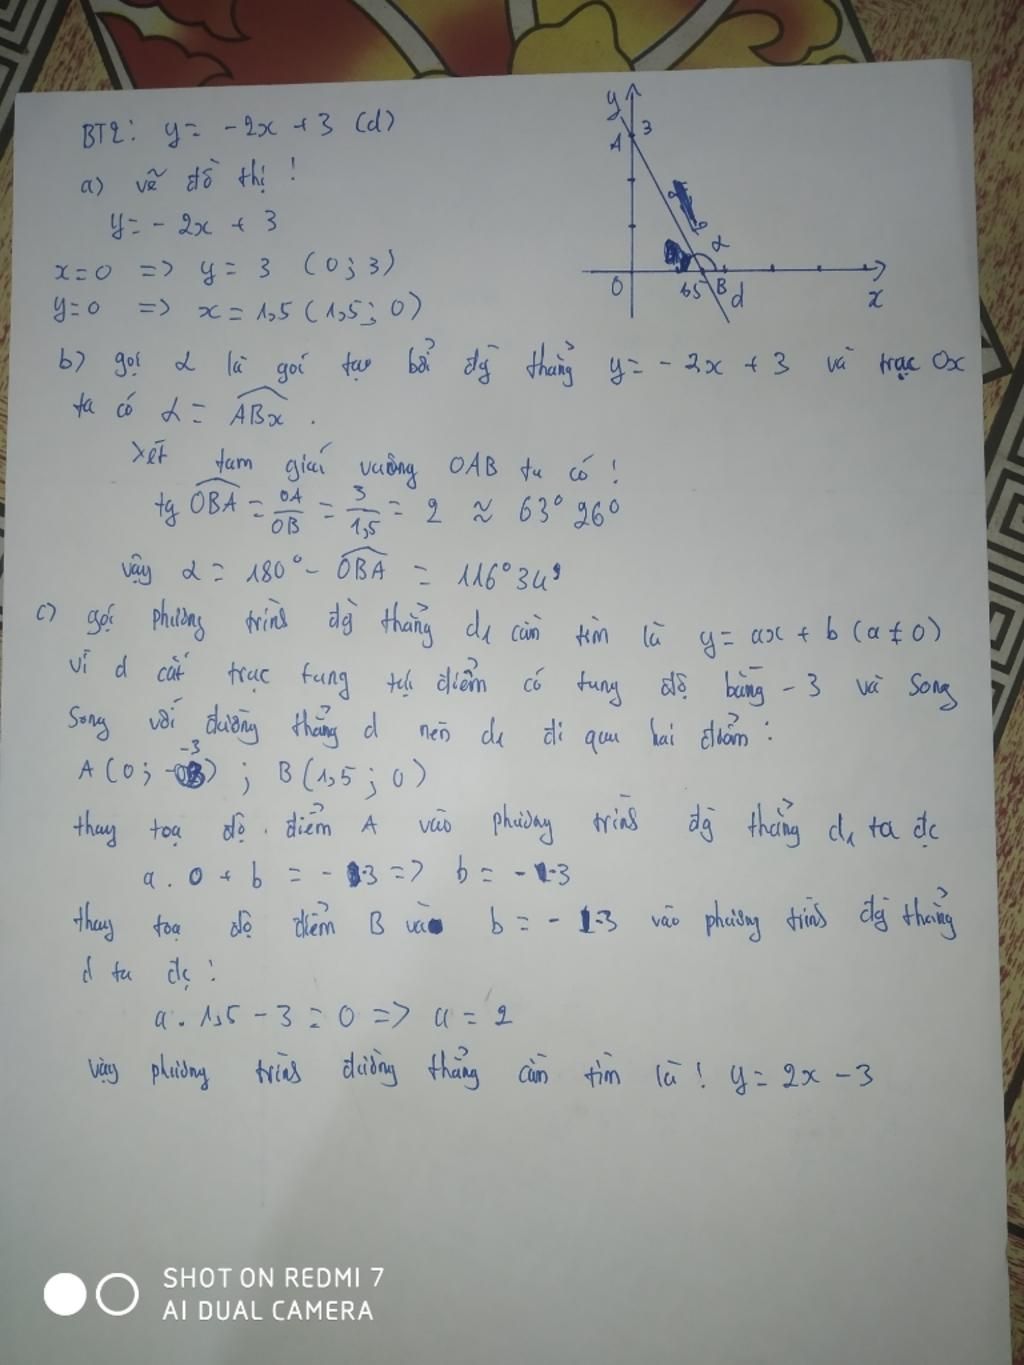 BT2: y = -2x + 3 (d)
a) vẽ đồ thị !
y = - 2x + 3
x = 0 => y = 3 (0 ; 3)
y = 0 => x = 1,5 (1,5 ; 0)
y
A 3
α
O 1,5 B d x
b) gọi α là goí tạo bởi đg̀ thẳng y = - 2x + 3 và trục Ox
ta có α = ABx .
Xét tam giác vuông OAB ta có !
tg OBA = OA/OB = 3/1,5 = 2 ≈ 63° 26°
vậy α = 180° - OBA = 116° 34'
c) gọi phương trình đg̀ thẳng d1 cần tìm là y = ax + b (a ≠ 0)
vì d cắt trục tung tại điểm có tung độ bằng - 3 và song
song với đường thẳng d nên d1 đi qua hai điểm :
A (0 ; -3) ; B (1,5 ; 0)
thay toạ độ điểm A vào phương trình đg̀ thẳng d1 ta đc
a . 0 + b = - 3 => b = - 3
thay toạ độ điểm B và b = - 3 vào phương trình đg̀ thẳng
d ta đc :
a . 1,5 - 3 = 0 => a = 2
vậy phương trình đường thẳng cần tìm là ! y = 2x - 3
SHOT ON REDMI 7
AI DUAL CAMERA